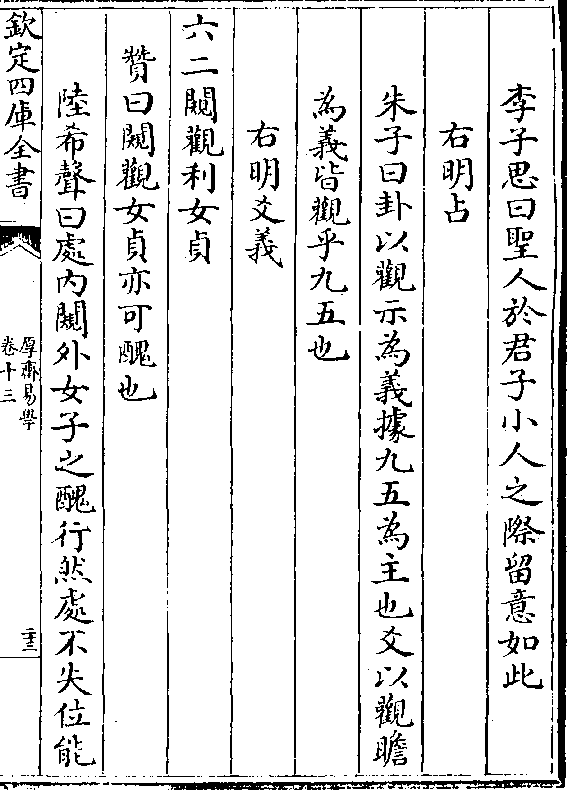 李子思曰聖人於君子小人之際留意如此
右明占
朱子曰卦以觀示為義據九五為主也爻以觀瞻
為義皆觀乎九五也
右明爻義
六二闚觀利女貞
贊曰闚觀女貞亦可醜也
陸希聲曰處內闚外女子之醜行然處不失位能
欽定四庫全書
厚齋易學
卷十三
二十三